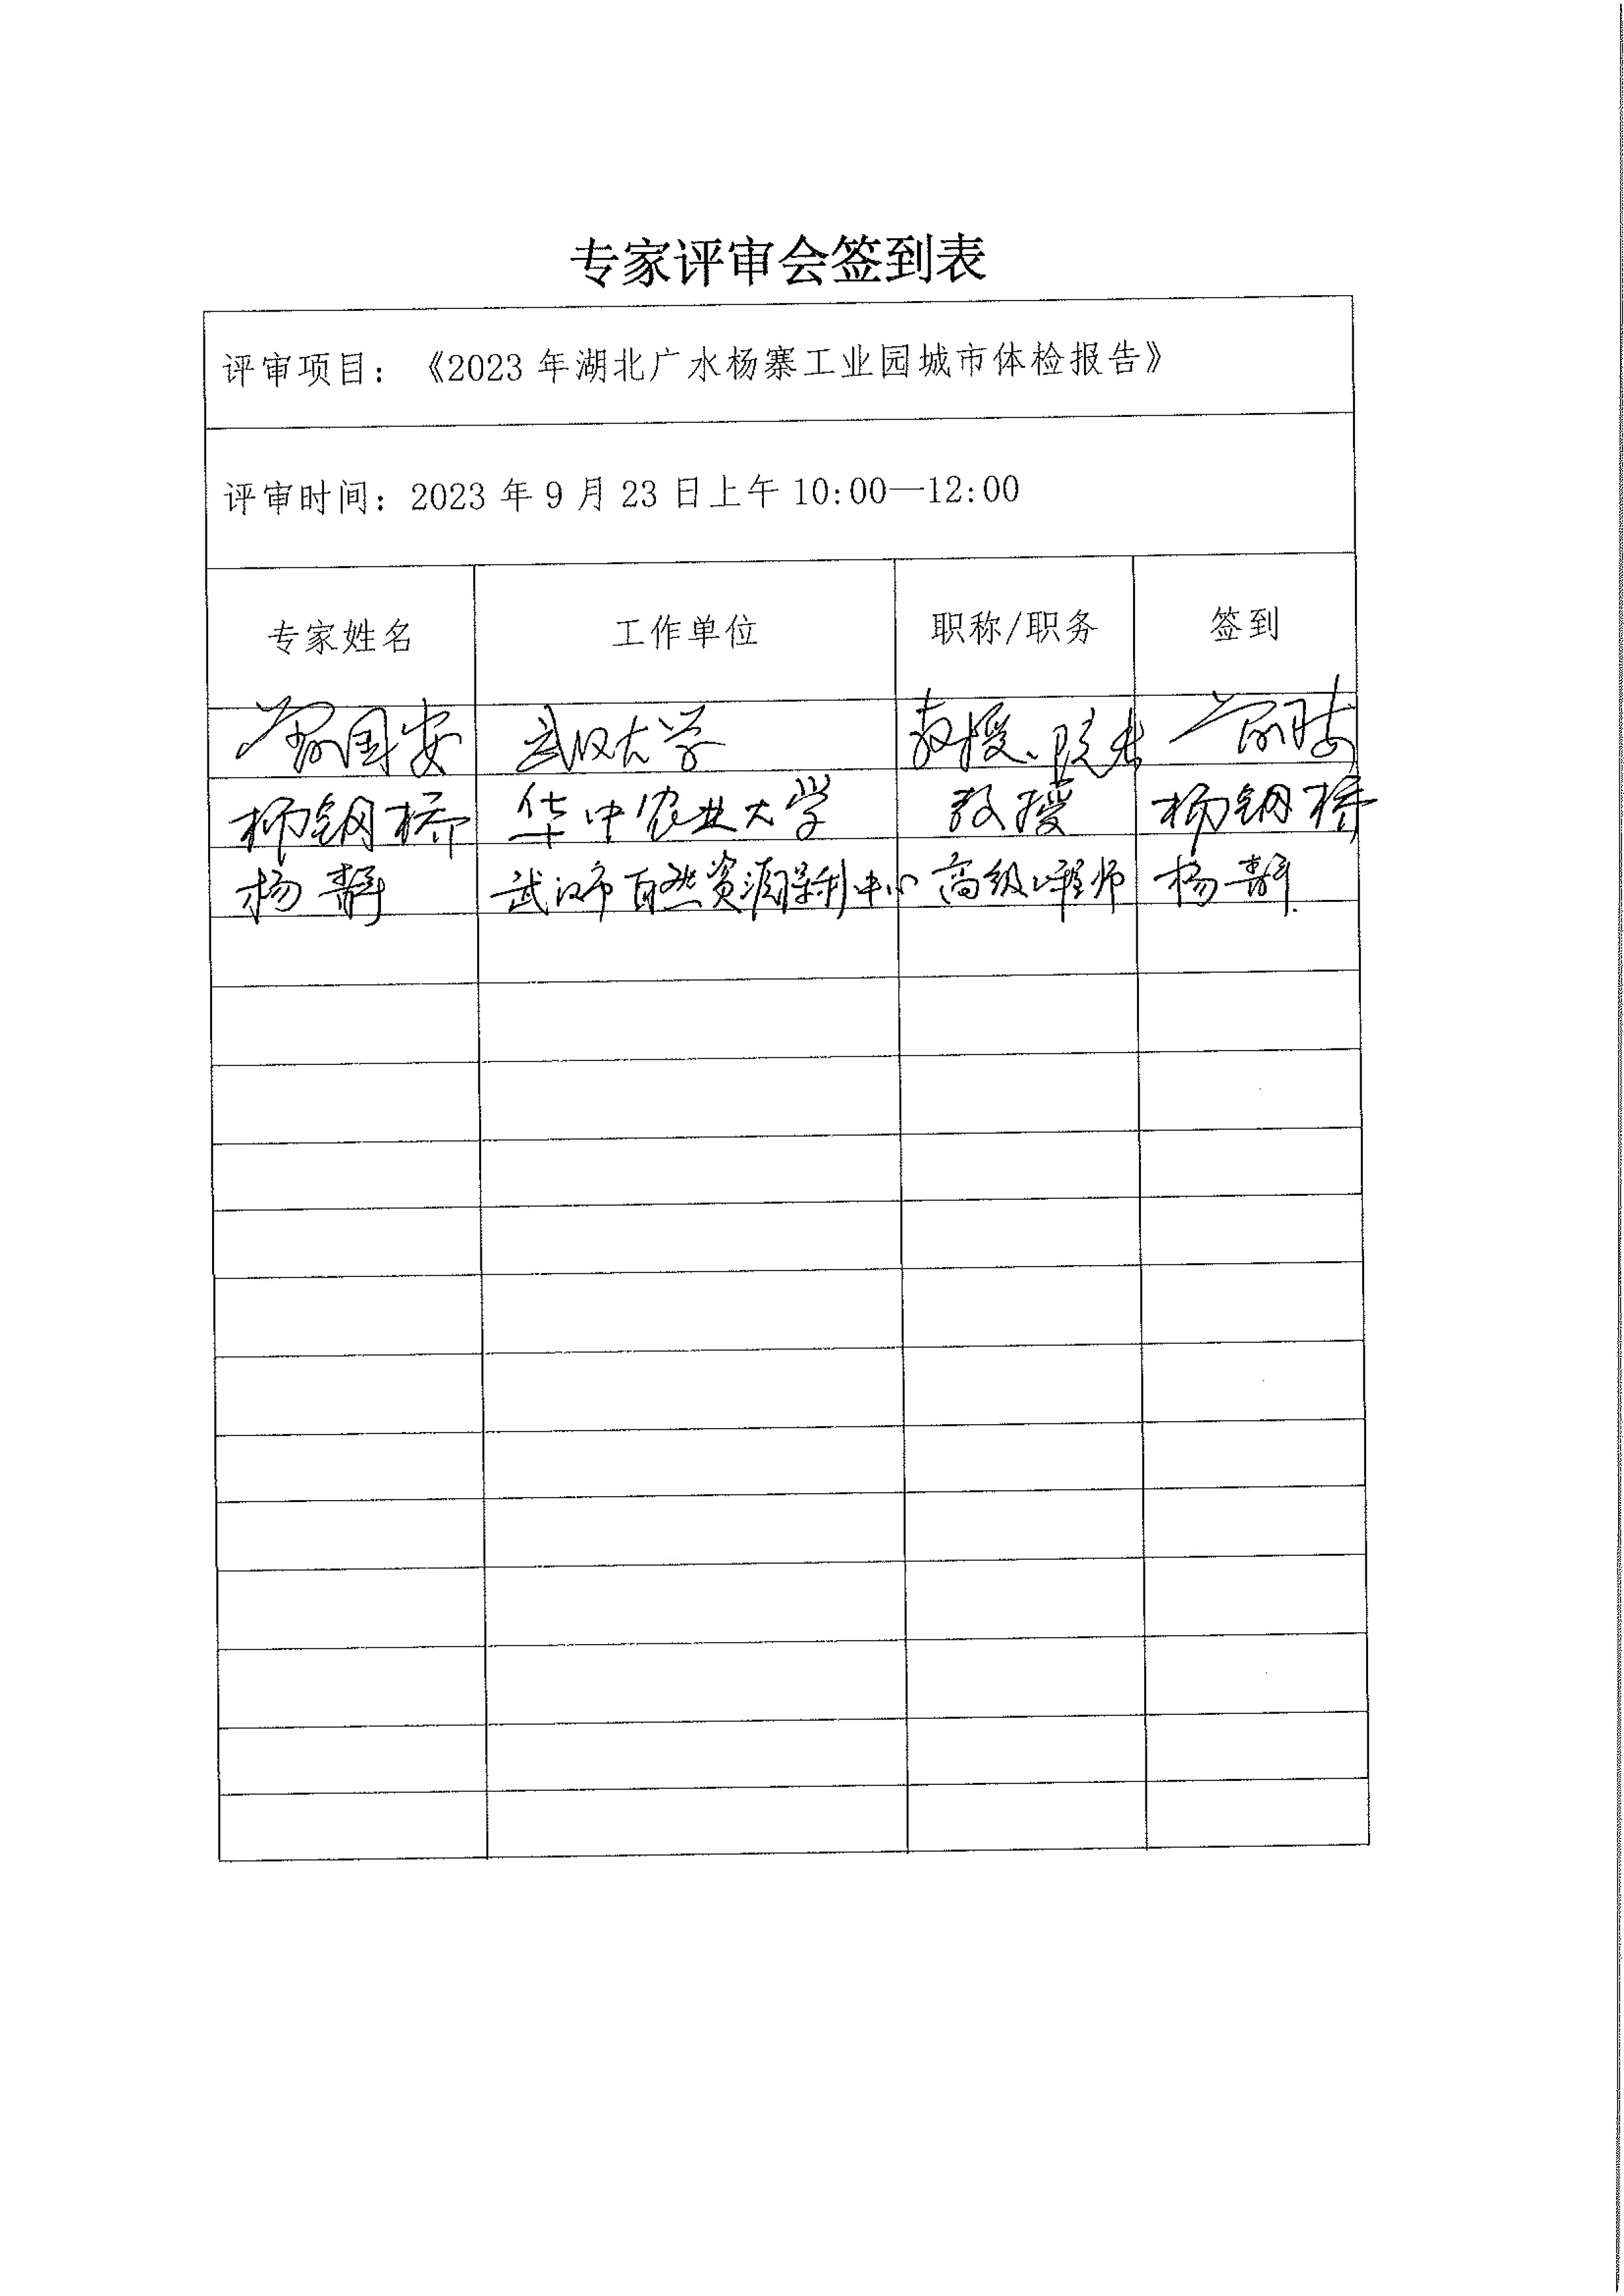 专家评审会签到表
评审项目：《2023年湖北广水杨寨工业园城市体检报告》
评审时间：2023年9月23日上午10:00—12:00
专家姓名 工作单位 职称/职务 签到
国安 武汉大学 教授、院长
杨钢桥 华中农业大学 教授 杨钢桥
杨静 武汉市自然资源保利中心 高级工程师 杨静